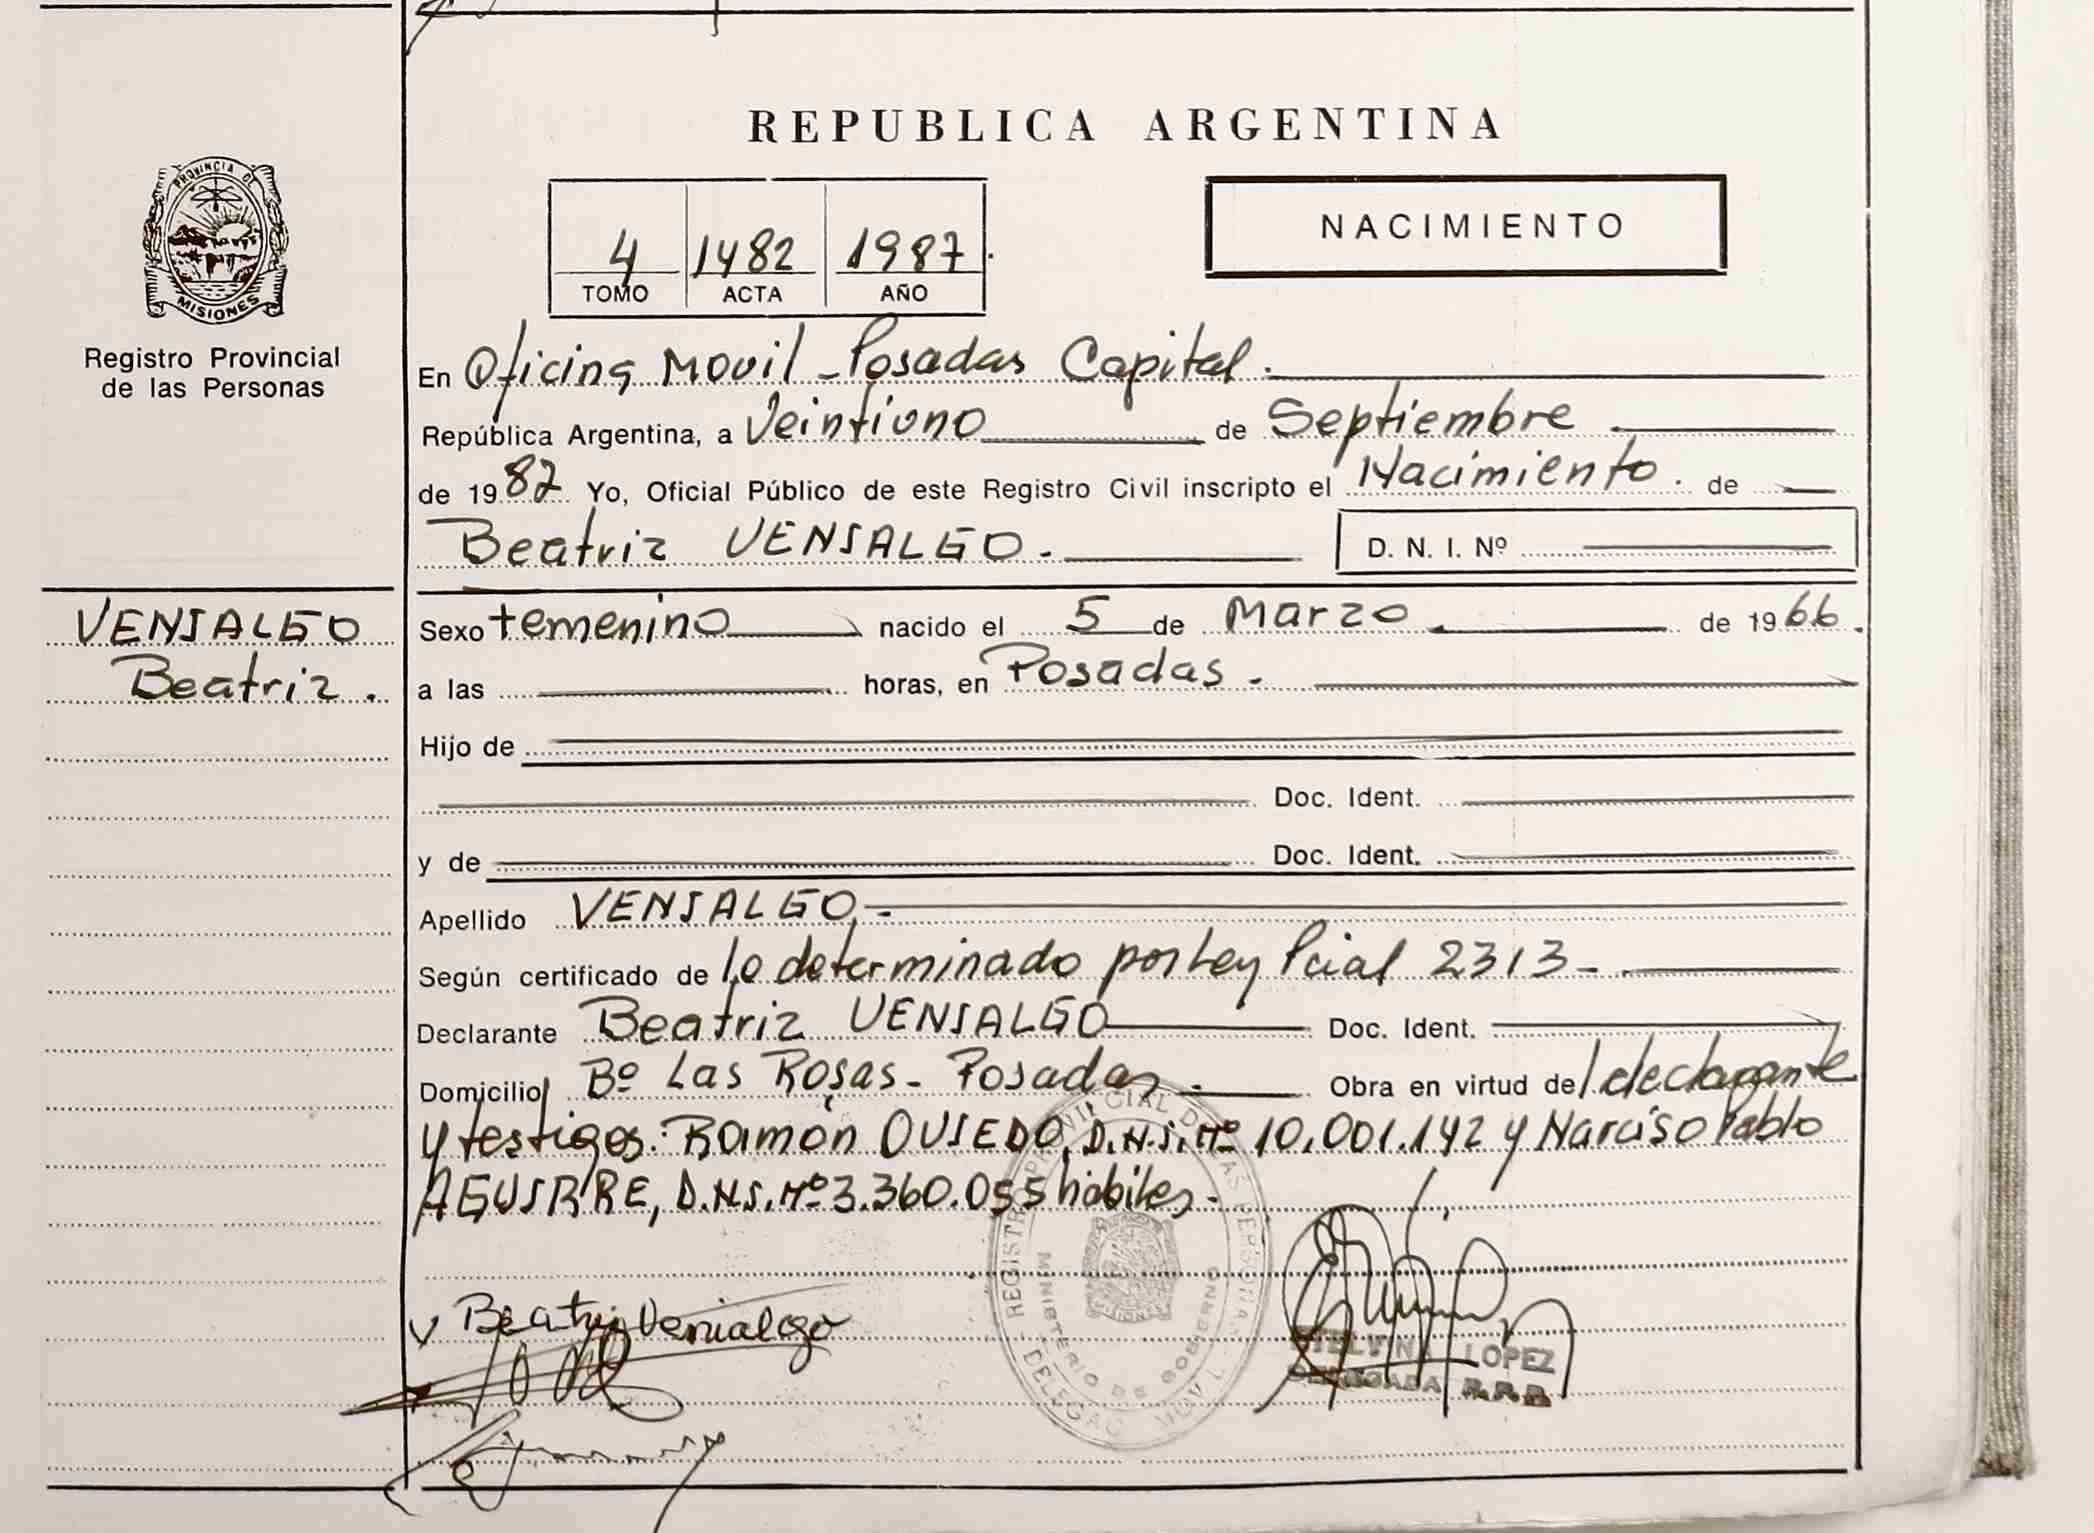 REPUBLICA ARGENTINA
PROVINCIA DE
MISIONES
Registro Provincial
de las Personas
NACIMIENTO
4 1482 1987
TOMO ACTA AÑO
En Oficina Movil - Posadas Capital.
República Argentina, a Veintiuno de Septiembre
de 1987 Yo, Oficial Público de este Registro Civil inscripto el Nacimiento. de
Beatriz VENIALGO. D. N. I. Nº
VENIALGO
Beatriz.
Sexo femenino nacido el 5 de Marzo de 1966.
a las horas, en Posadas.
Hijo de
Doc. Ident.
y de Doc. Ident.
Apellido VENIALGO.-
Según certificado de lo determinado por Ley Pcial 2313-
Declarante Beatriz VENIALGO Doc. Ident.
Domicilio Bº Las Rosas - Posadas.- Obra en virtud del declarante
y testigos: Ramón OVIEDO, D.N.I. Nº 10.001.142 y Narciso Pablo
AGUIRRE, D.N.I. Nº 3.360.055 hábiles.-
Beatriz Venialgo
REGISTRO PROVINCIAL DE LAS PERSONAS
MINISTERIO DE GOBIERNO
LOPEZ
DELEGADA R.P.P.